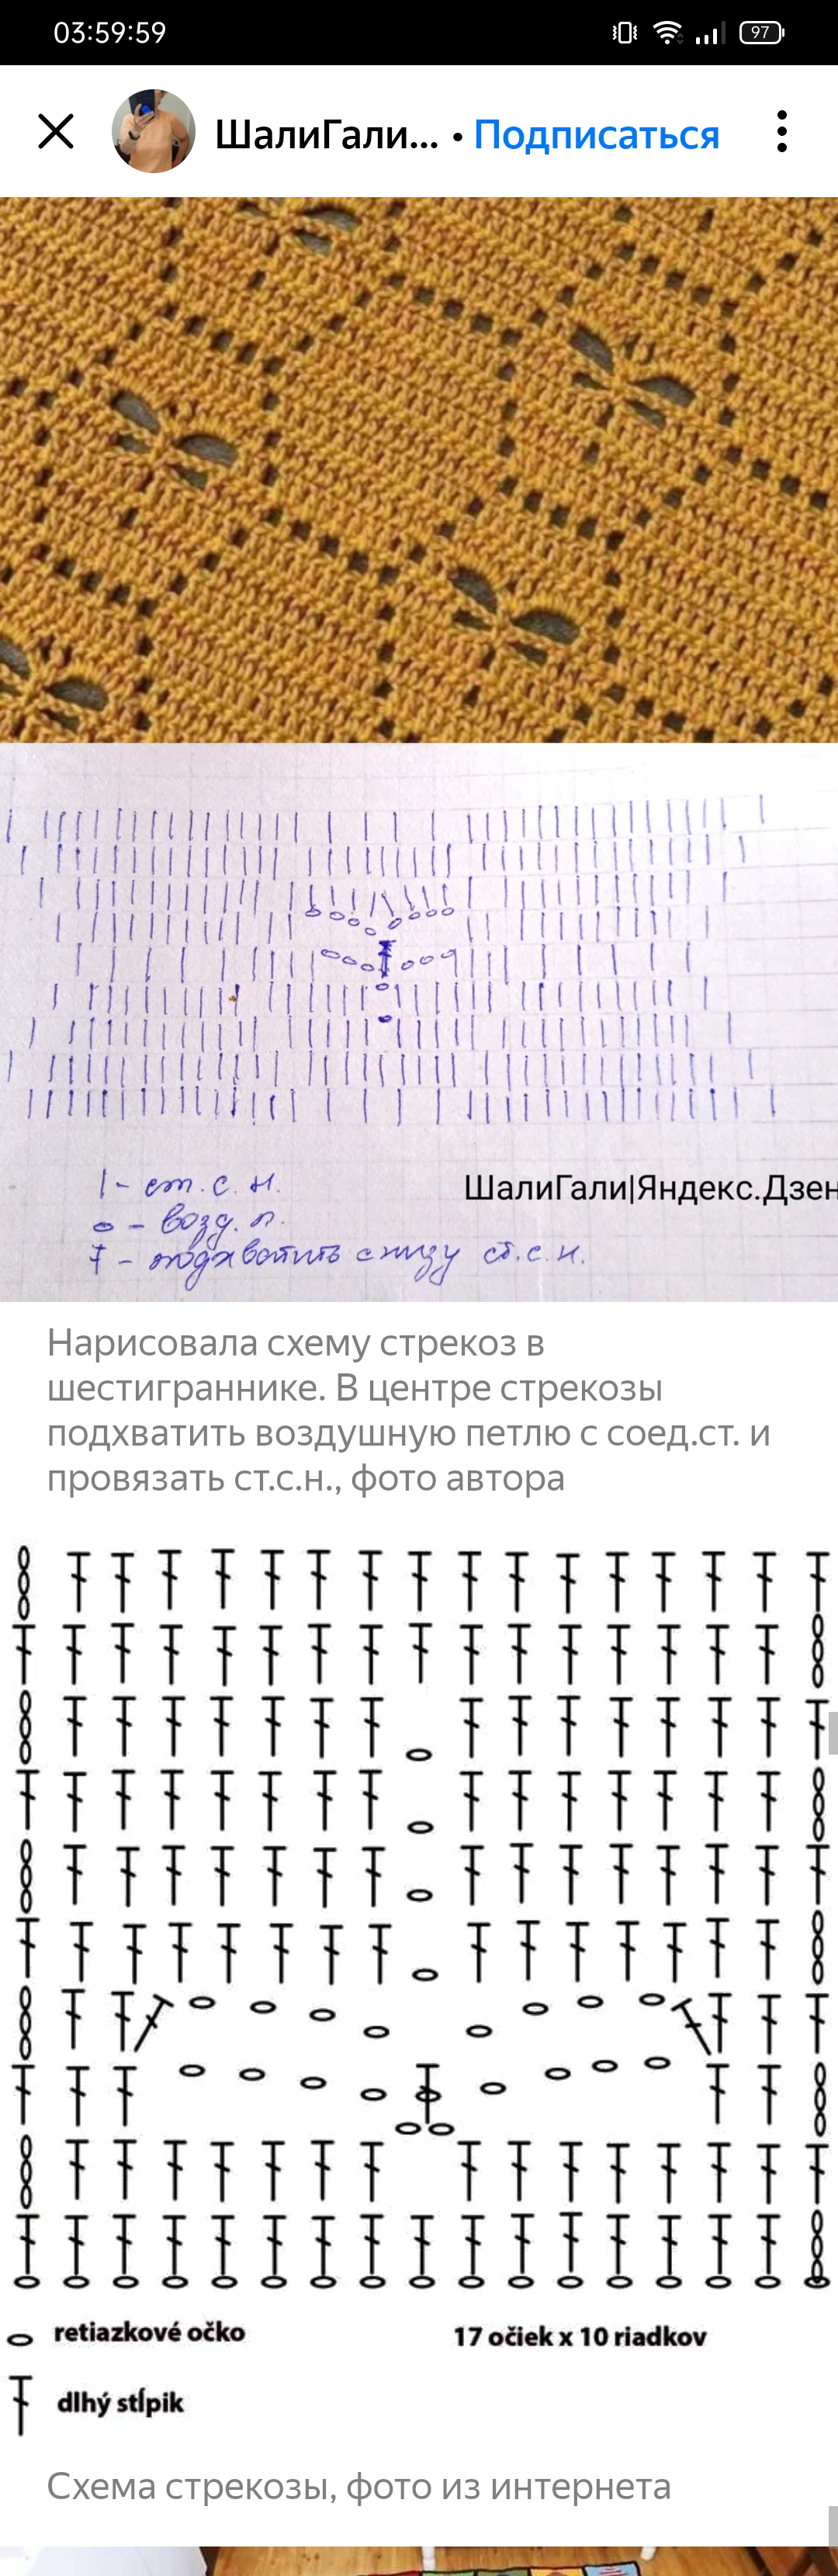 03:59:59
97
ШалиГали... • Подписаться
I - ст. с. н.
о - возд. п.
ШалиГали|Яндекс.Дзен
- подхватить снизу ст. с. н.
Нарисовала схему стрекоз в
шестиграннике. В центре стрекозы
подхватить воздушную петлю с соед.ст. и
провязать ст.с.н., фото автора
retiazkové očko
17 očiek x 10 riadkov
dlhý stĺpik
Схема стрекозы, фото из интернета